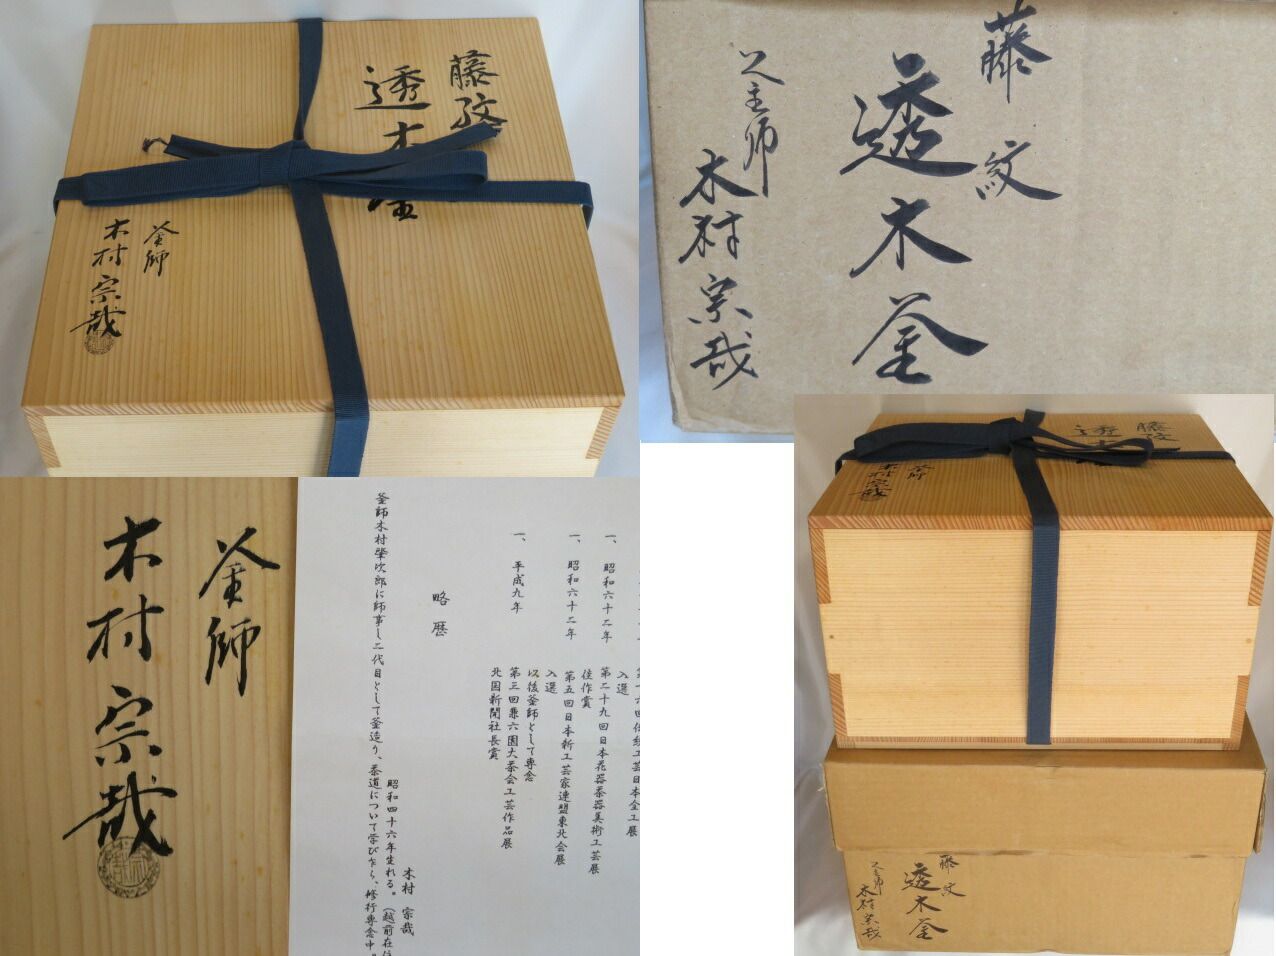 藤紋
透木釜
釜師
木村宗哉
藤紋
透木釜
釜師
木村宗哉
釜師
木村宗哉
一、
一、昭和六十二年
第二十九回日本花器茶器美術工芸展
佳作賞
一、昭和六十二年
第五回日本新工芸家連盟東北会展
入選
以後釜師として専念
一、平成九年
第三回兼六園大茶会工芸作品展
北国新聞社長賞
略歴
木村宗哉
昭和四十六年生れる。(越前在住
釜師木村肇次郎に師事し二代目として釜造り、茶道について学び乍ら、修行専念中。
藤紋
透木釜
釜師
木村宗哉
藤紋
透木釜
釜師
木村宗哉